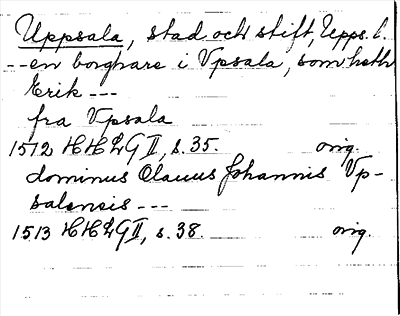 Uppsala, stad och stift, Upps. l.
-- en borghare i Vpsala, som heth
Erik ---
fra Vpsala
1512 HHLG II, s. 35. orig.
dominus Olauus Johannis Vp-
salensis ---
1513 HHLG II, s. 38. orig.